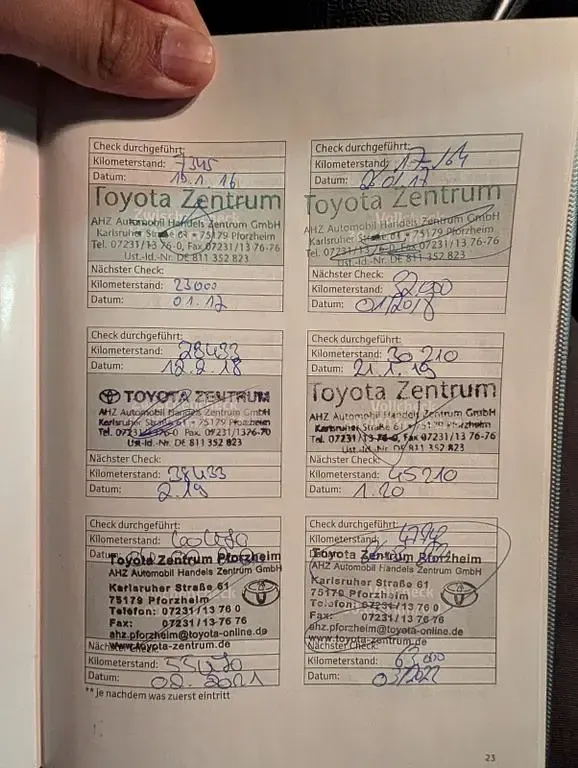 Check durchgeführt:
Kilometerstand: 7345
Datum: 18.1.16
Toyota Zentrum
Zwischencheck
AHZ Automobil Handels Zentrum GmbH
Karlsruher Straße 61 • 75179 Pforzheim
Tel. 07231/13 76-0, Fax 07231/13 76-76
Ust.-Id.-Nr. DE 811 352 823
Nächster Check:
Kilometerstand: 23000
Datum: 01.17
Check durchgeführt:
Kilometerstand: 17164
Datum:
Toyota Zentrum
AHZ Automobil Handels Zentrum GmbH
Karlsruher Straße 61 • 75179 Pforzheim
Tel. 07231/13 76-0, Fax 07231/13 76-76
Ust.-Id.-Nr. DE 811 352 823
Nächster Check:
Kilometerstand:
Datum: 01/2018
Check durchgeführt:
Kilometerstand: 28433
Datum: 12.2.18
TOYOTA ZENTRUM
AHZ Automobil Handels Zentrum GmbH
Karlsruher Straße 61 • 75179 Pforzheim
Tel. 07231/1376-0, Fax. 07231/1376-70
Ust-Id.-Nr. DE 811 352 823
Nächster Check:
Kilometerstand: 38433
Datum: 2.19
Check durchgeführt:
Kilometerstand: 30210
Datum: 21.1.19
Toyota Zentrum
Vollcheck
AHZ Automobil Handels Zentrum GmbH
Karlsruher Straße 61 • 75179 Pforzheim
Tel. 07231/13 76-0, Fax 07231/13 76-76
Ust.-Id.-Nr. DE 811 352 823
Nächster Check:
Kilometerstand: 45210
Datum: 1.20
Check durchgeführt:
Kilometerstand:
Datum:
Toyota Zentrum Pforzheim
AHZ Automobil Handels Zentrum GmbH
Karlsruher Straße 61
75179 Pforzheim
Telefon: 07231/13 76 0
Fax: 07231/13 76 76
ahz.pforzheim@toyota-online.de
www.toyota-zentrum.de
Nächster Check:
Kilometerstand:
Datum: 02.2021
Check durchgeführt:
Kilometerstand:
Datum:
Toyota Zentrum Pforzheim
AHZ Automobil Handels Zentrum GmbH
Karlsruher Straße 61
75179 Pforzheim
Telefon: 07231/13 76 0
Fax: 07231/13 76 76
ahz.pforzheim@toyota-online.de
www.toyota-zentrum.de
Nächster Check:
Kilometerstand: 63000
Datum: 03/2022
** je nachdem was zuerst eintritt
23